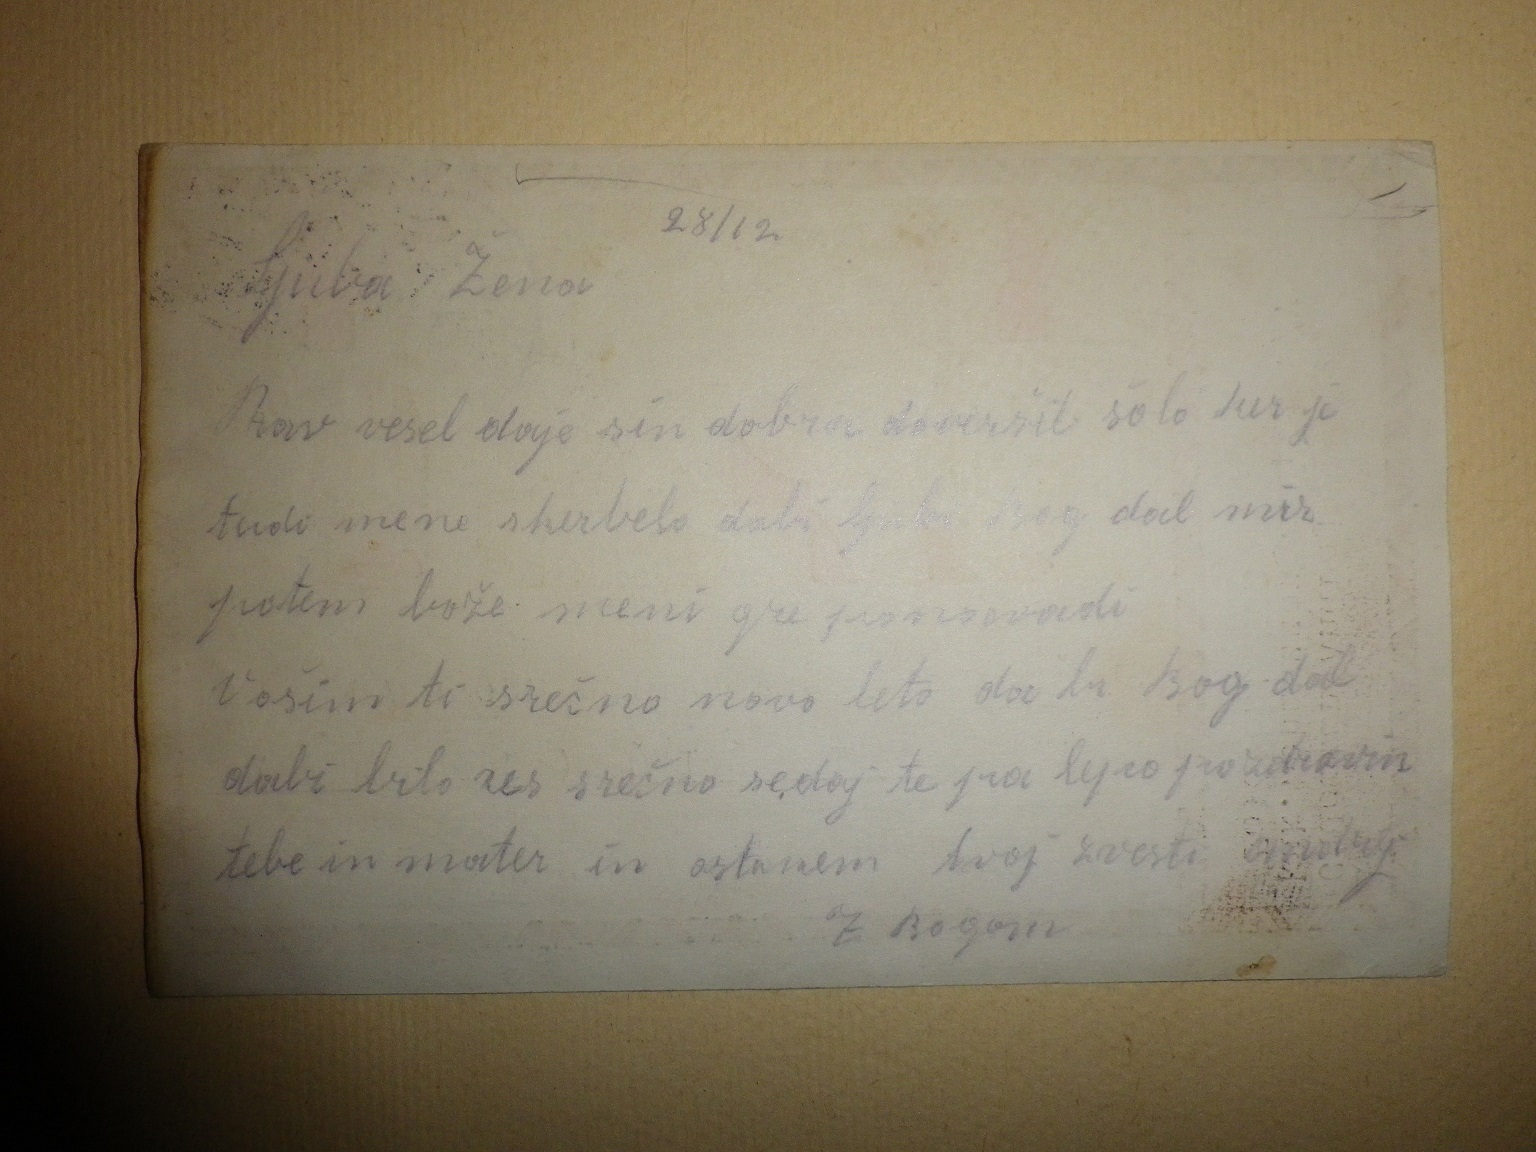 28/12
Ljuba Žena
Prav vesel daje sin dobra doveršil šolo ker je
tudi mene skerbelo dabi ljubi Bog dal mir
potem bože meni gre
Vošim ti srečno novo leto da bi Bog dal
dabi bilo res srečno sedaj te pa lepo pozdravim
tebe in mater in ostanem tvoj zvesti Andrej
Z Bogom